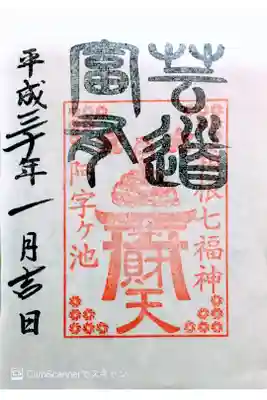 芸道
富有
根七福神
財天
阿字ヶ池
平成三十年一月吉日
CamScannerでスキャン